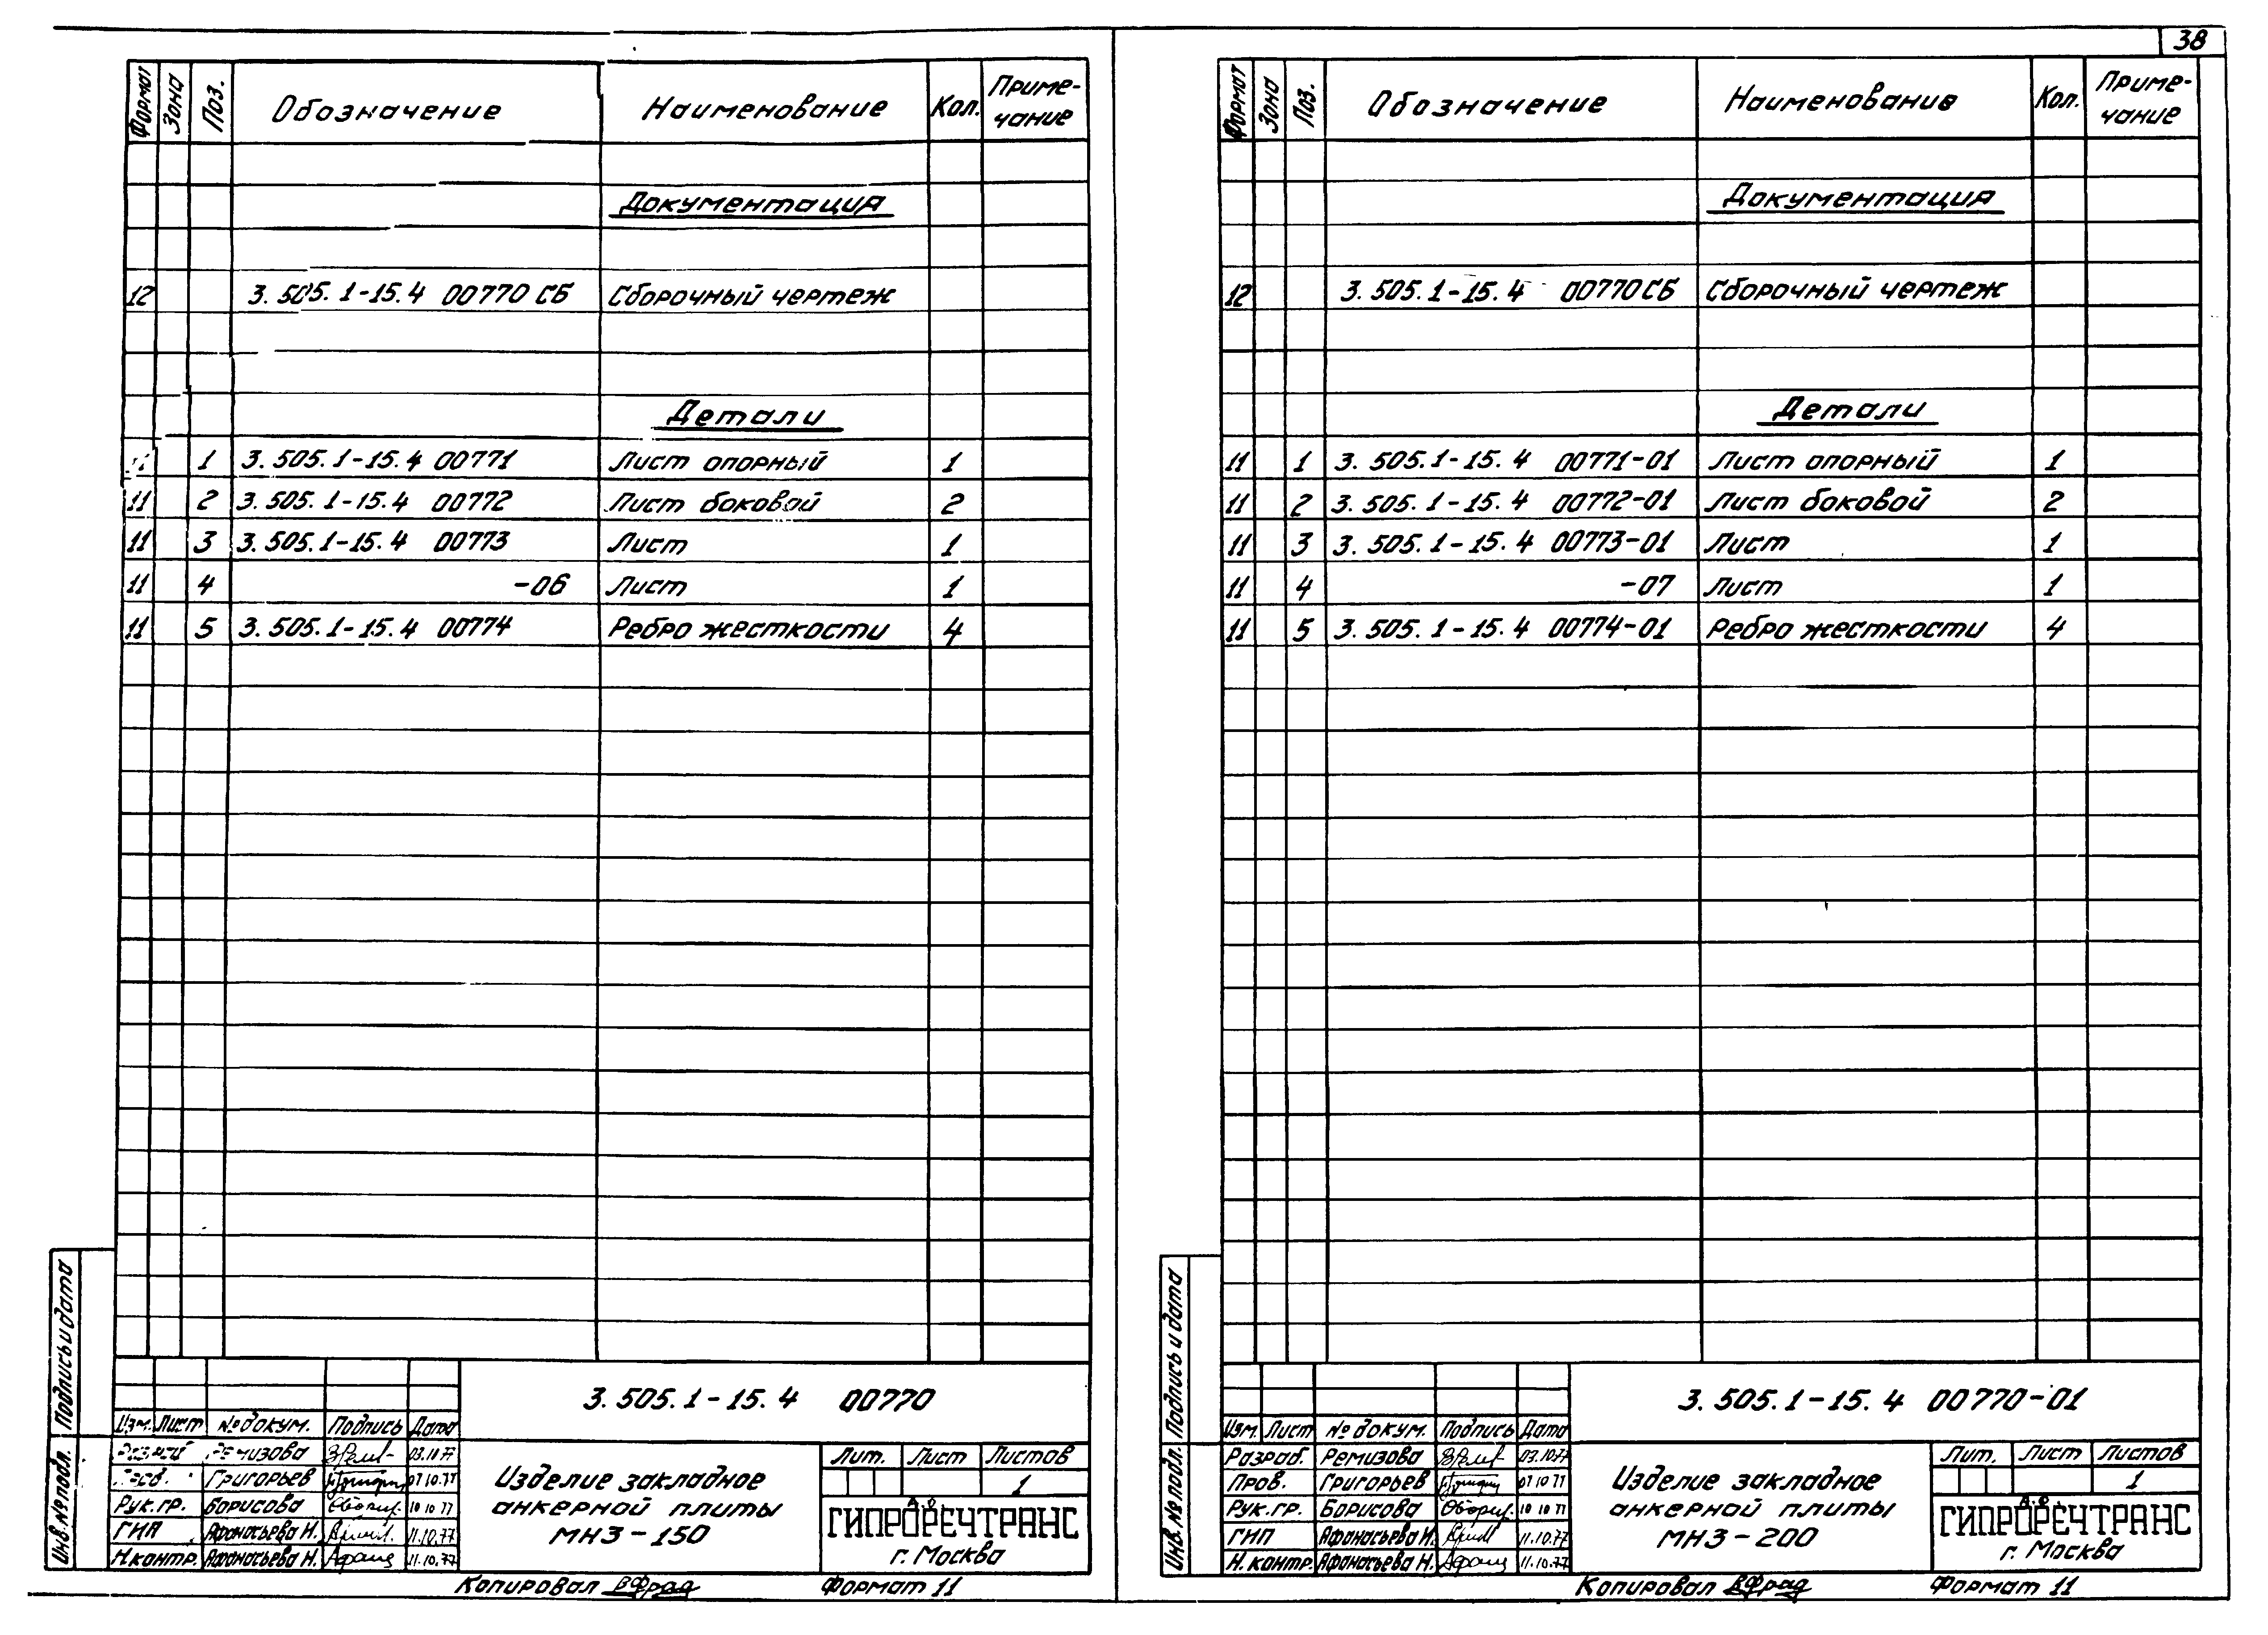 38
Формат Зона Поз. Обозначение Наименование Кол. Приме-
чание
Документация
12 3.505.1-15.4 00770 СБ Сборочный чертеж
Детали
11 1 3.505.1-15.4 00771 Лист опорный 1
11 2 3.505.1-15.4 00772 Лист боковой 2
11 3 3.505.1-15.4 00773 Лист 1
11 4 -06 Лист 1
11 5 3.505.1-15.4 00774 Ребро жесткости 4
Подпись и дата
Инв. № подл.
3.505.1-15.4 00770
Изм. Лист № докум. Подпись Дата
Ремизова 03.10.77
Григорьев 07.10.77
Рук.гр. Борисова 10 10 77
ГИП Афанасьева Н. 11.10.77
Н.контр. Афанасьева Н. 11.10.77
Изделие закладное
анкерной плиты
МН3-150
Лит. Лист Листов
1
ГИПРОРЕЧТРАНС
г. Москва
Копировал Формат 11
Формат Зона Поз. Обозначение Наименование Кол. Приме-
чание
Документация
12 3.505.1-15.4 00770 СБ Сборочный чертеж
Детали
11 1 3.505.1-15.4 00771-01 Лист опорный 1
11 2 3.505.1-15.4 00772-01 Лист боковой 2
11 3 3.505.1-15.4 00773-01 Лист 1
11 4 -07 Лист 1
11 5 3.505.1-15.4 00774-01 Ребро жесткости 4
Подпись и дата
Инв. № подл.
3.505.1-15.4 00770-01
Изм. Лист № докум. Подпись Дата
Разраб. Ремизова 03.10.77
Пров. Григорьев 07 10 77
Рук.гр. Борисова 10 10 77
ГИП Афанасьева Н. 11.10.77
Н.контр. Афанасьева Н. 11.10.77
Изделие закладное
анкерной плиты
МН3-200
Лит. Лист Листов
1
ГИПРОРЕЧТРАНС
г. Москва
Копировал Формат 11